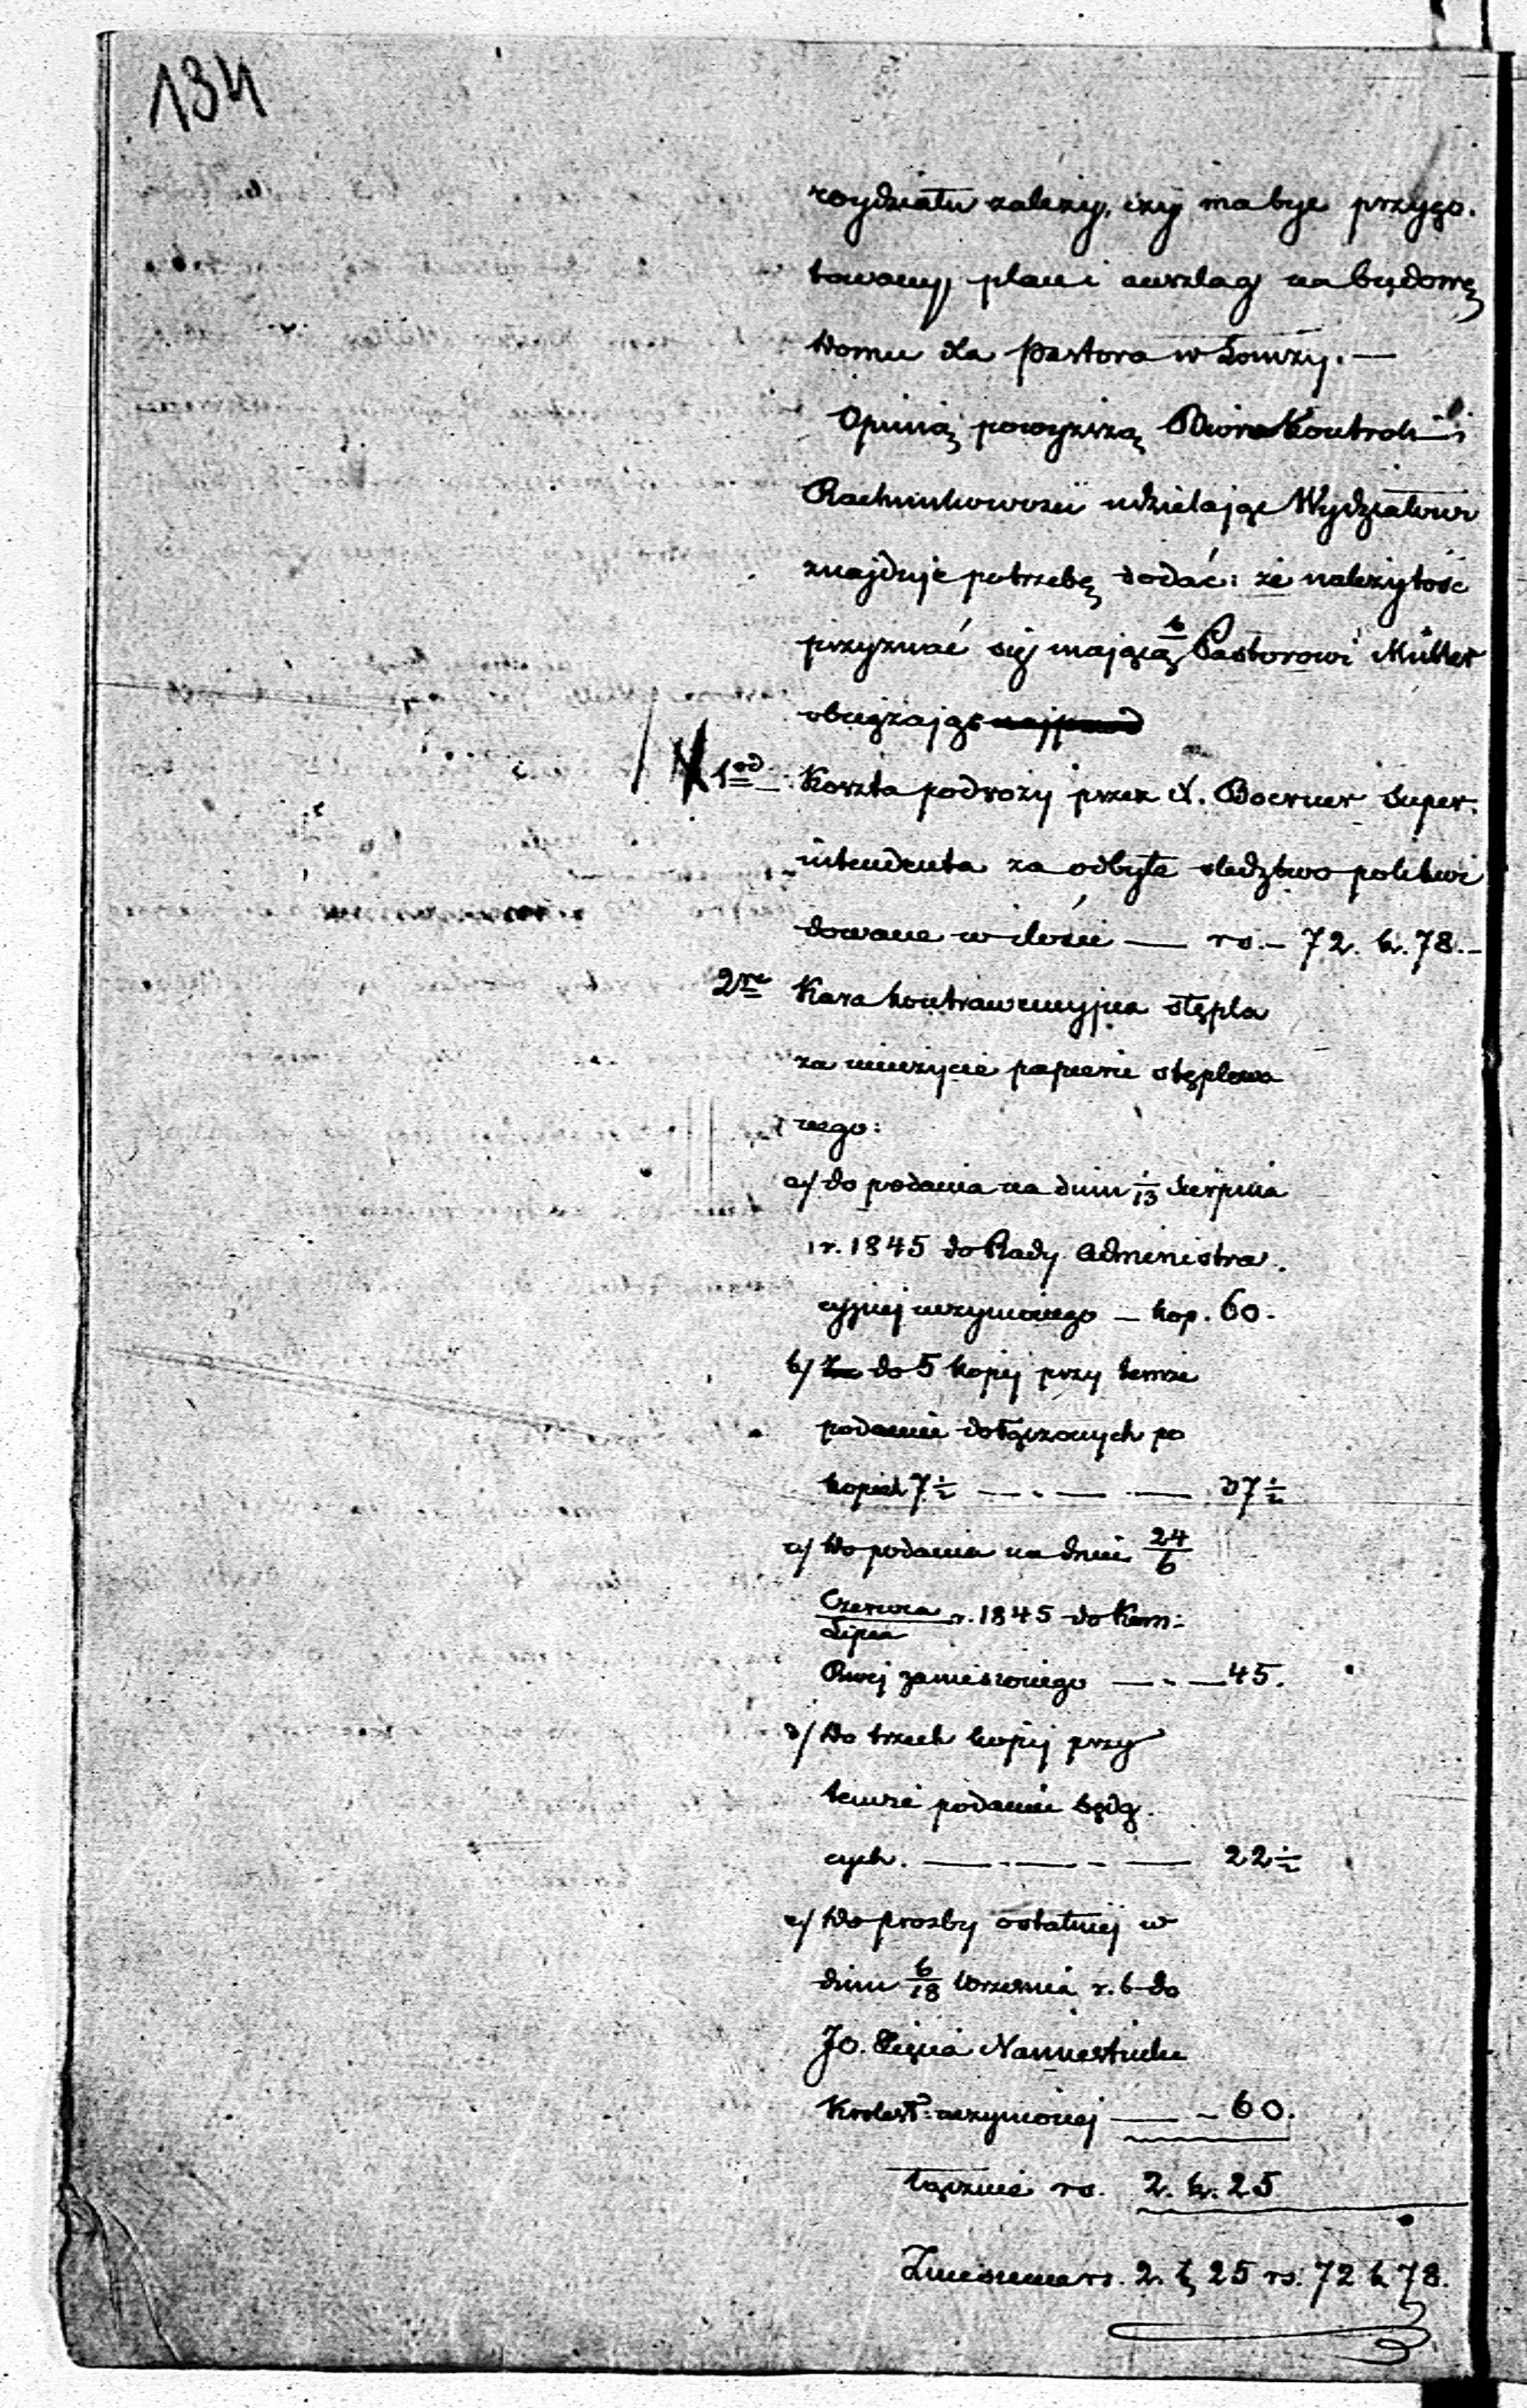 134
rozdziału zależy, czy ma być przygo.
towany plan i anszlag na budowę
domu dla Pastora w Łomży. —
Opinią powyższą Biuro Kontroli i
Rachunkowości udzielając Wydziałowi
znajduje potrzebę dodać: że należytość
przyznać się mającą b Pastorowi Müller
obciążają
1od Koszta podróży przez X. Boerner Super.
intendenta za odbyte śledztwo polikwi
dowane w ilości — rs. — 72. k. 78. —
2re Kara kontrawencyjna stępla
za nieużycie papieru stęplowa
nego:
a/ do podania na dniu 1/13 Sierpnia
r. 1845 do Rady Administra.
cyjnej uczynionego — kop. 60.
b/ do 5 kopij przy temże
podaniu dołączonych po
kopiek 7 1/2 — . — — 37 1/2
c/ do podania na dniu 24/6
Czerwca/Lipca r. 1845 do Kom:
Rwej zaniesionego — - — 45.
d/ do trzech kopij przy
temże podaniu będą.
cych. — . — - — 22 1/2
e/ do prośby ostatniej w
dniu 6/18 Września r. b do
JO. Xięcia Namiestnika
Królest: uczynionej — - 60.
łącznie rs. 2. k. 25
Zniesienie rs. 2. k 25 rs. 72 k 78.